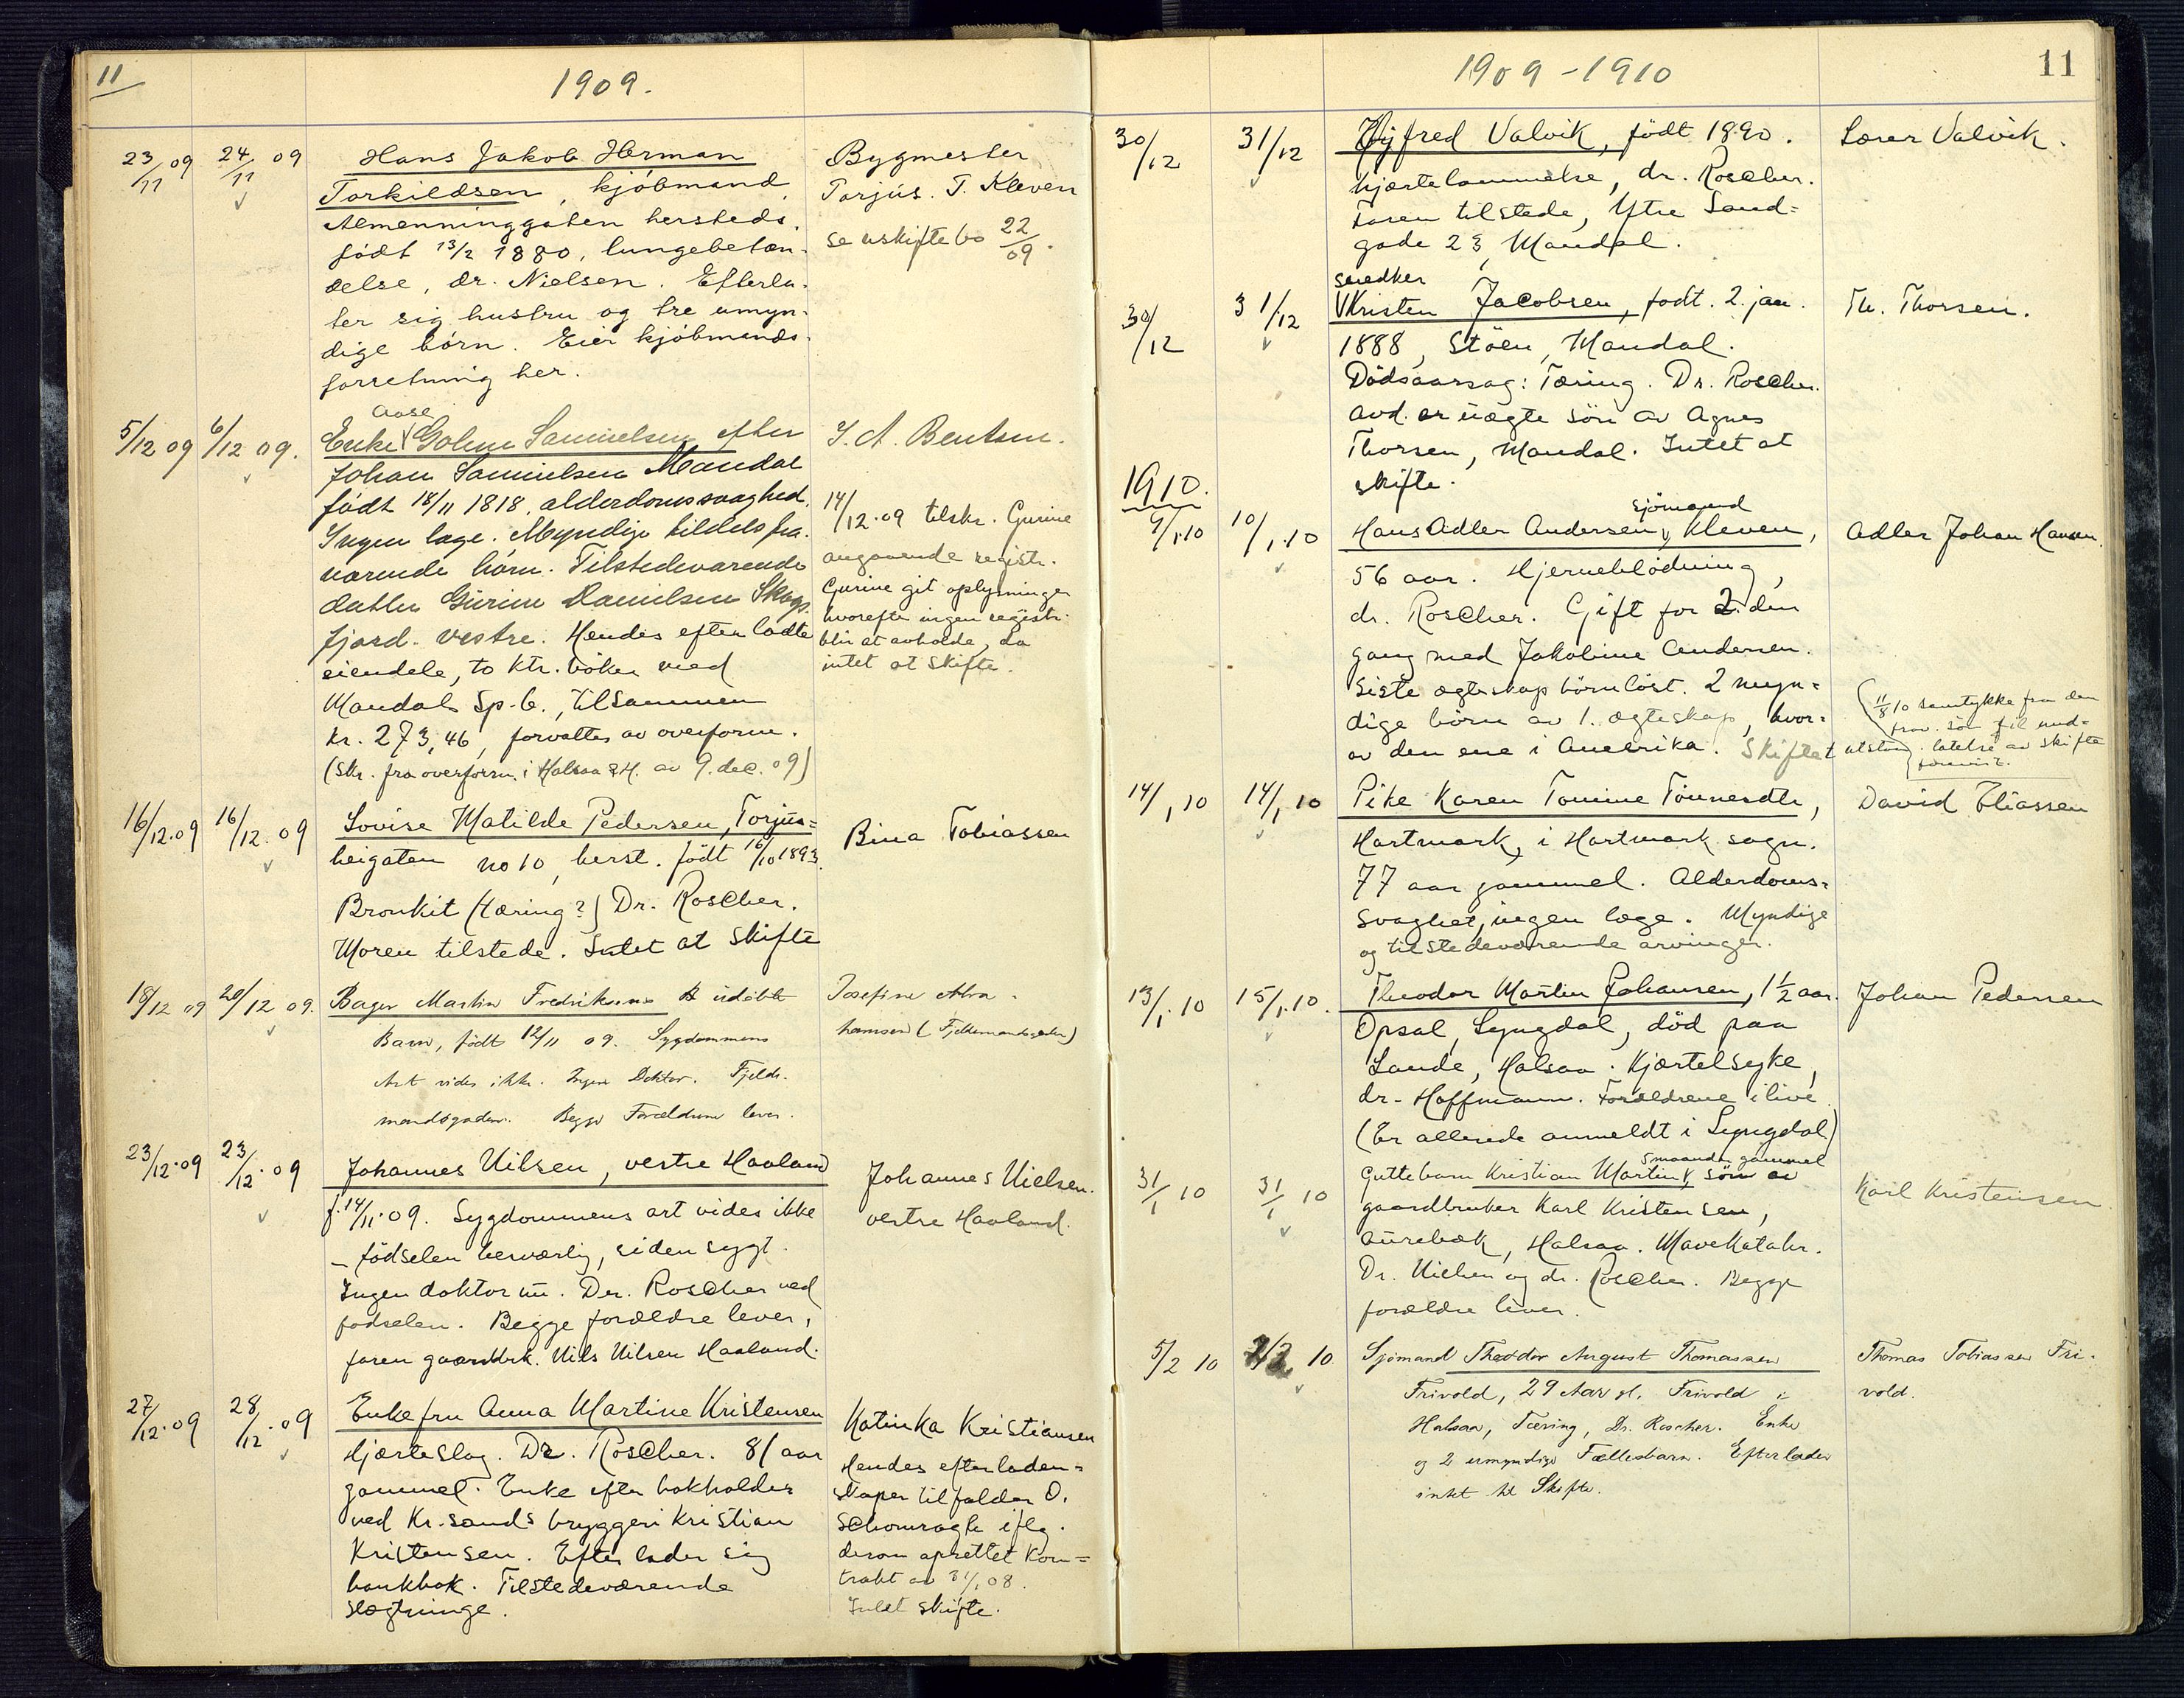 11
1909.
23/11 09
24/11 09
Hans Jakob Herman
Torkildsen, kjöbmand,
Almenninggaten hersteds.
født 13/2 1880, lungebetæn-
delse, dr. Nielsen. Efterla-
ter sig hustru og tre umyn-
dige børn. Eier kjöbmands-
forretning her.
Bygmester
Torjus. T. Kleven
se uskiftebo 22/09.
5/12 09
6/12 09.
Aase
Enke Golene Samuelsen efter
Johan Samuelsen Mandal
født 18/11 1818, alderdomssvaghed.
Ingen læge. Myndige tildels fra-
værende börn. Tilstedeværende
datter Gurine Danielsen Skogs-
fjord vestre. Hendes efterladte
eiendele, to ktr. böker med
Mandals Sp.b., tilsammen
kr. 273,46, forvaltes av overform.
(Skr. fra overform. i Halsaa & H. av 9. dec. 09)
J. A. Bentsen.
14/12.09 tilskr. Gurine
angaaende registr.
Gurine git oplysninger
hvorefter ingen registr.
blir at avholde, da
intet at skifte.
16/12.09
16/12.09
Lovise Matilde Pedersen, Torjus=
heigaten no 10, herst. født 16/10 1893.
Bronkit (tæring?) Dr. Roscher.
Moren tilstede. Intet at skifte
Bina Tobiassen
18/12 09
20/12 09.
Bager Martin Fredriksens udöbte
Barn, født 12/11 09. Sygdommens
Art vides ikke. Ingen Doktor. Fjelds-
mandsgaden. Begge Forældrene lever.
Josefine Abra-
hamsen (Fjeldsmandsgaden)
23/12.09
23/12.09
Johannes Nilsen, vestre Haaland
f. 14/11.09. Sygdommens art vides ikke
– födselen besværlig, siden sygt.
Ingen doktor nu. Dr. Roscher ved
fødselen. Begge forældre lever,
faren gaardbrk. Nils Nilsen Haaland.
Johannes Nielsen.
vestre Haaland.
27/12.09
28/12.09
Enkefru Anna Martine Kristensen
Hjærteslag. Dr. Roscher. 81 aar
gammel. Enke efter bokholder
ved Kr.sands bryggeri Kristian
Kristensen. Efterlader sig
bankbok. Tilstedeværende
slægtninge.
Katinka Kristiansen
Hendes efterladen=
skaper tilfalder O.
Schomragh iflg.
derom oprettet kon=
trakt av 31/1 08.
Intet skifte.
1909-1910
11
30/12
31/12
Hyfred Valvik, født 1890.
hjærtelammelse, dr. Roscher.
Faren tilstede, Ytre Sand=
gade 23, Mandal.
Lærer Valvik.
30/12
31/12
snedker
Kristen Jacobsen, født. 2. jan.
1888, Stöen, Mandal.
Dödsaarsag: Tæring. Dr. Roscher.
Avd. er uægte sön av Agnes
Thorsen, Mandal. Intet at
skifte.
Th. Thorsen.
1910.
9/1.10
10/1.10
sjömand
Hans Adler Andersen, Kleven,
56 aar. Hjerneblödning,
dr. Roscher. Gift for 2den
gang med Jakobine Andersen.
Siste ægteskap börnlöst. 2 myn=
dige börn av 1. ægteskap, hvor=
av den ene i Amerika. Skiftet utstaar.
Adler Johan Hansen.
11/8 10 samtykke fra den
frav. sön til und=
latelse av skifte
14/1 10
14/1 10
Pike Karen Tomine Tönnesdtr,
Hartmark, i Hartmark sogn.
77 aar gammel. Alderdoms=
svaghet, ingen læge. Myndige
og tilstedeværende arvinger.
David Eliassen
13/1.10
15/1.10.
Theodor Martin Johansen, 1½ aar.
Opsal, Lyngdal, död paa
Lande, Halsaa. Kjærtelsyke,
dr. Hoffmann. Forældrene ilive
(Er allerede anmeldt i Lyngdal)
Johan Pedersen
31/1 10
31/1 10
5 maaneder gammel
Guttebarn Kristian Martin, sön av
gaardbruker Karl Kristensen,
Aurebæk, Halsaa. Mavekatahr.
Dr. Nielsen og dr. Roscher. Begge
forældre lever.
Karl Kristensen
5/2 10
7/2 10
Sjömand Theodor August Thomassen
Frivold, 29 Aar gl. Frivold i
Halsaa, Tæring, Dr. Roscher. Enke
og 2 umyndige Fællesbarn. Efterlader
intet til Skifte.
Thomas Tobiassen Fri-
vold.